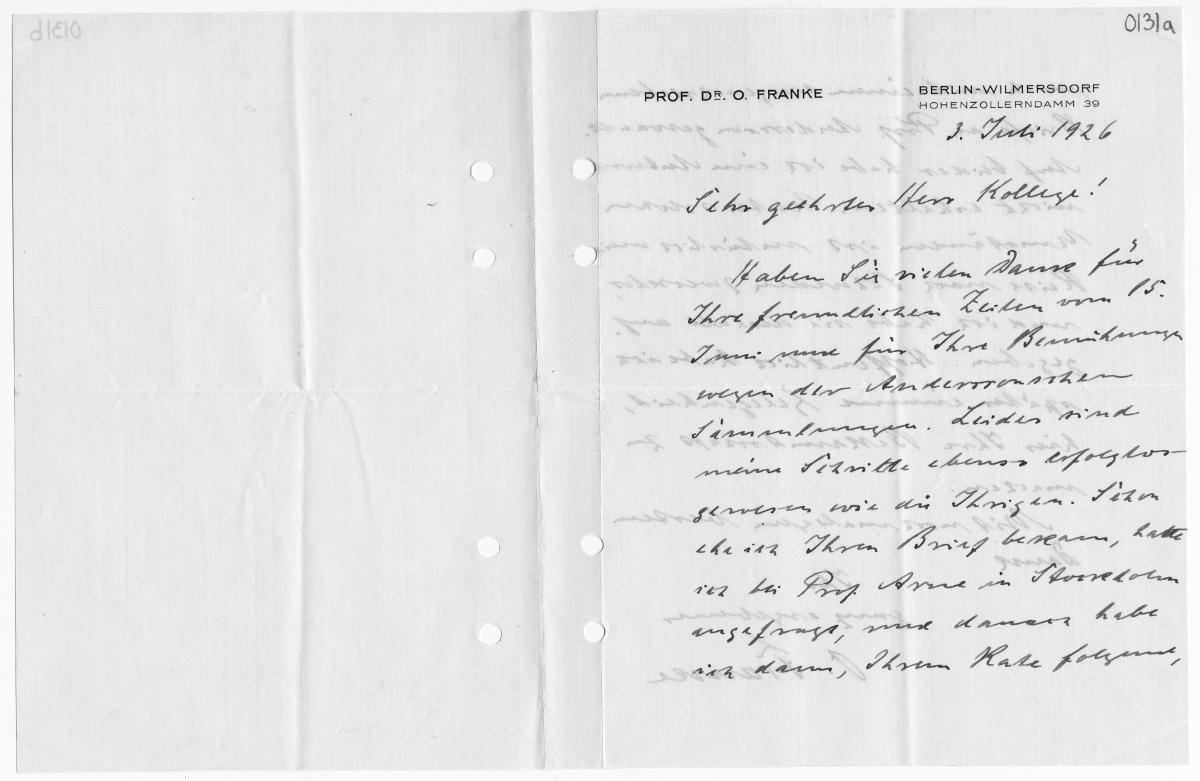 0131a
PROF. DR. O. FRANKE
BERLIN-WILMERSDORF
HOHENZOLLERNDAMM 39
3. Juli 1926
Sehr geehrter Herr Kollege!
Haben Sie vielen Dank für
Ihre freundlichen Zeilen vom 15.
Juni und für Ihre Bemühungen
wegen der Anderssonschen
Sammlungen. Leider sind
meine Schritte ebenso erfolglos
gewesen wie die Ihrigen. Schon
ehe ich Ihren Brief bekam, hatte
ich bei Prof. Arne in Stockholm
angefragt, und danach habe
ich dann, Ihrem Rate folgend,
0131b